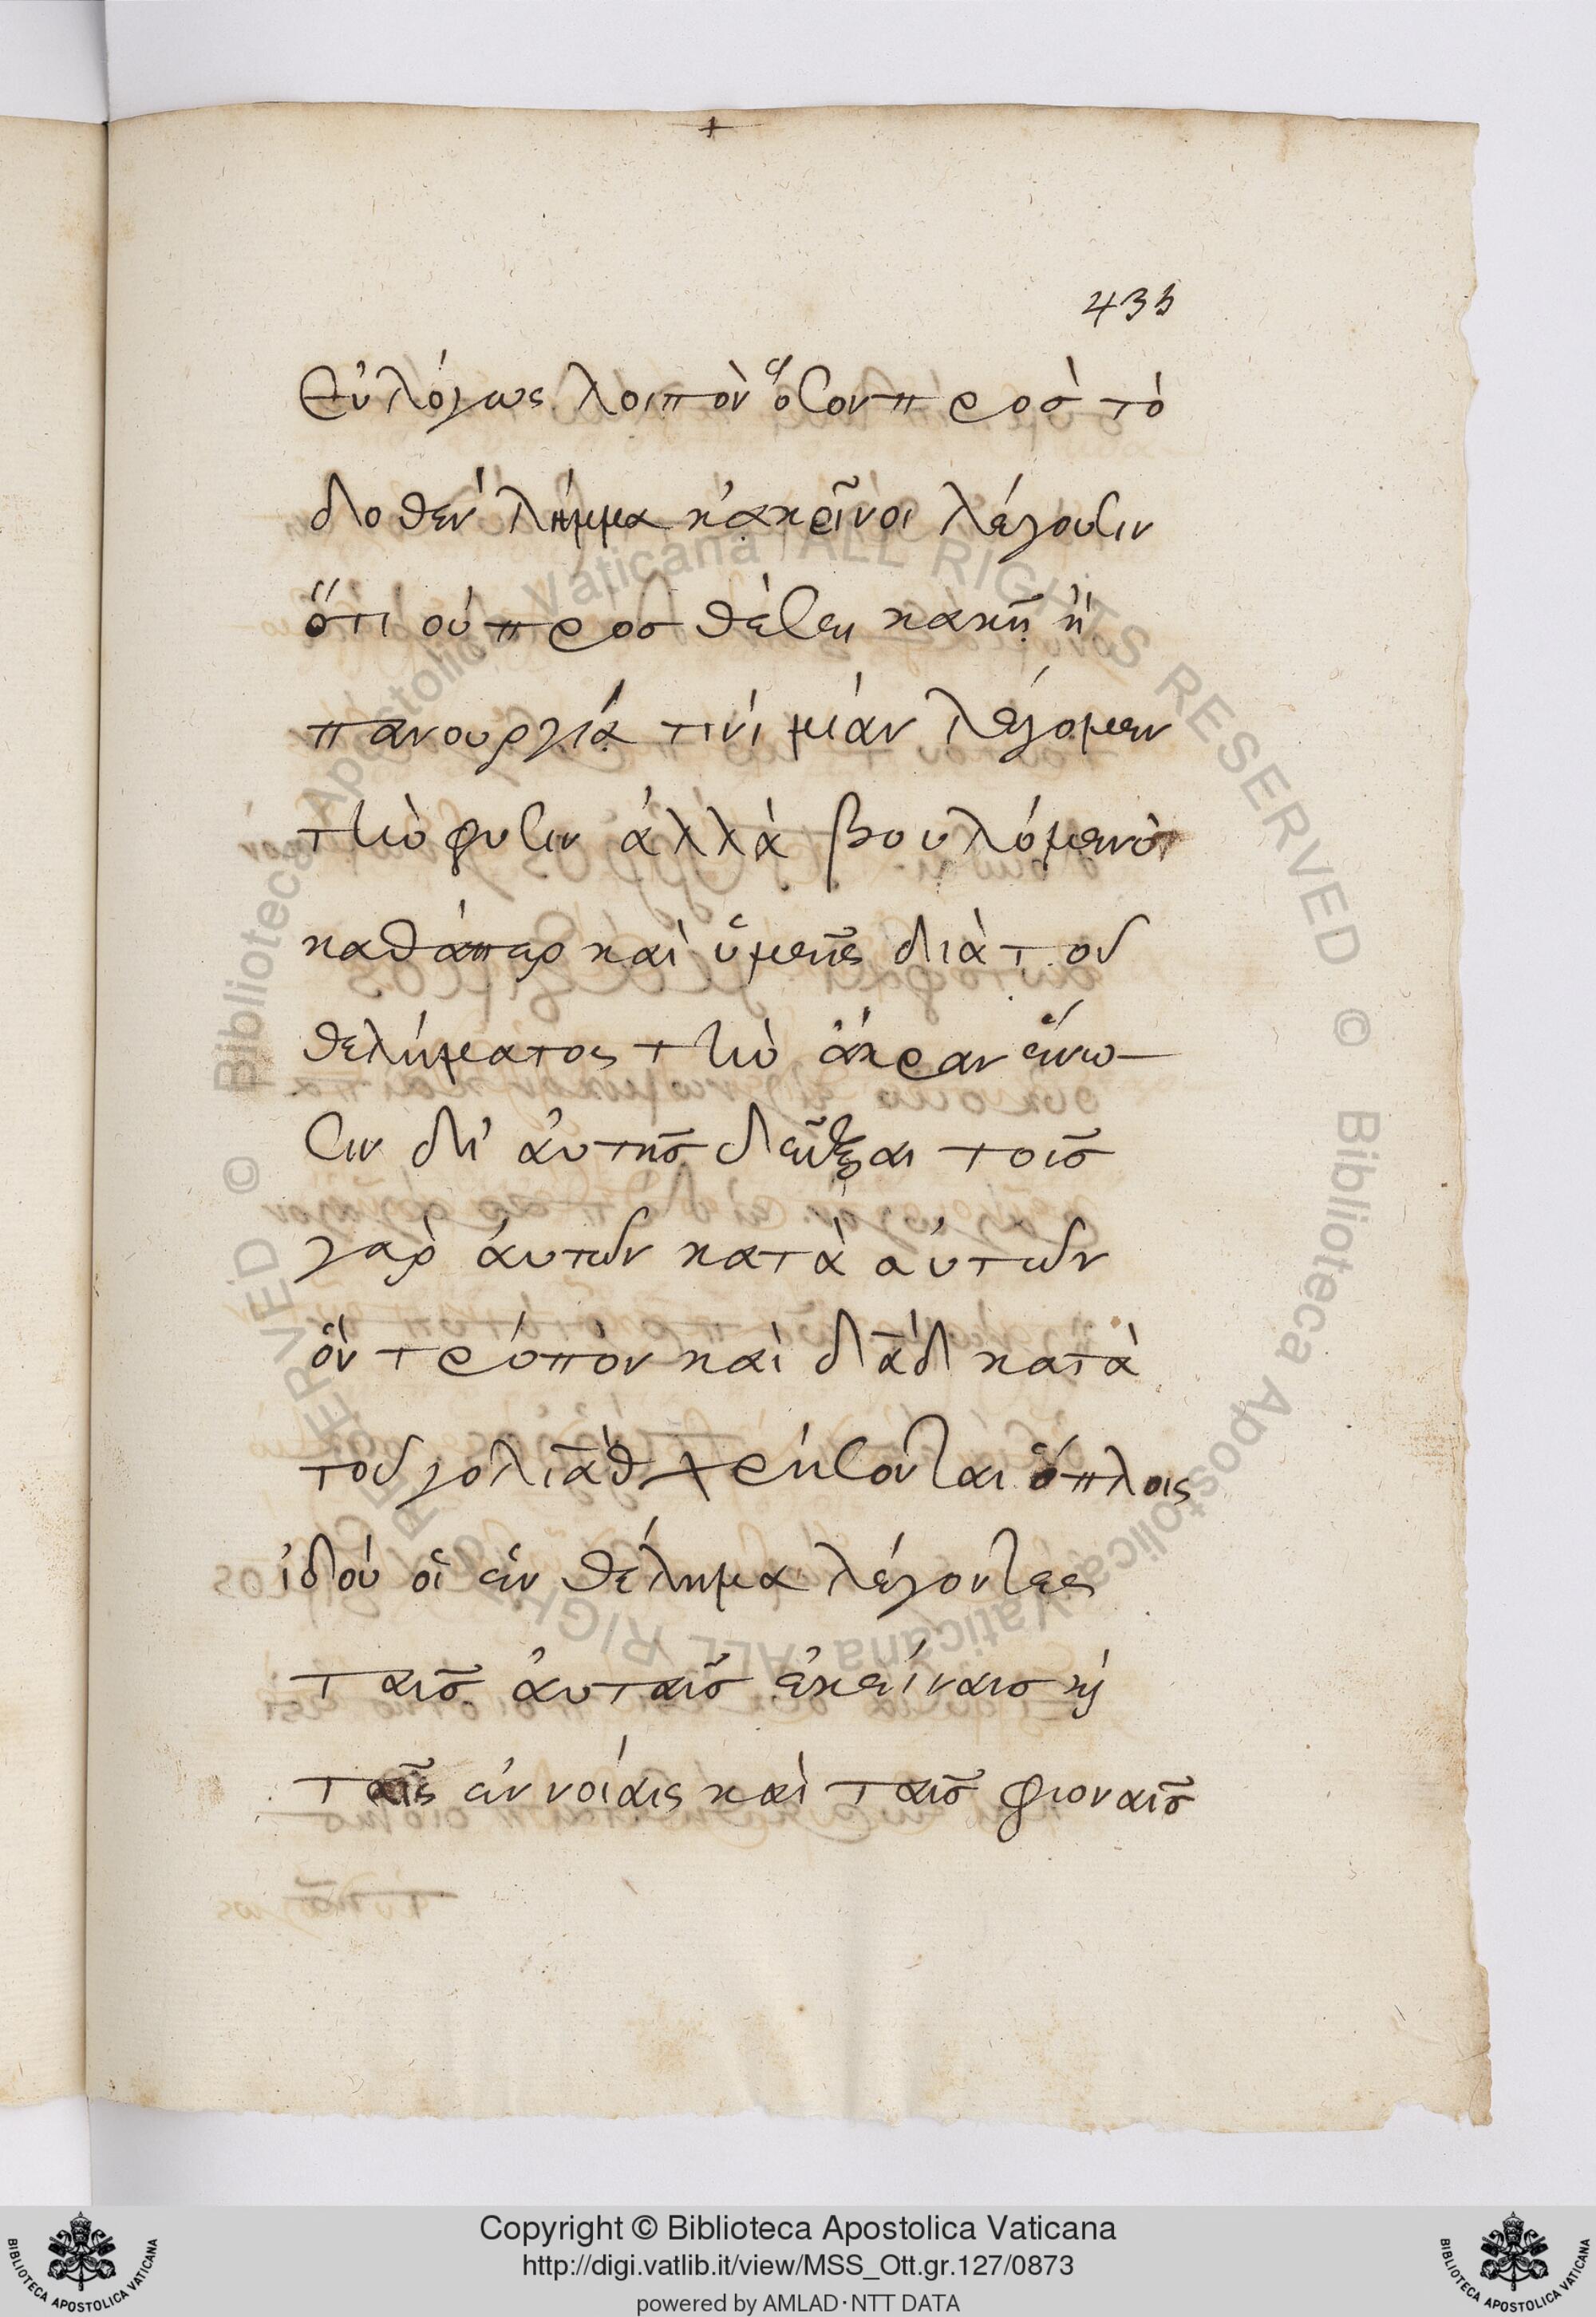 435
Εὐλόγως λοιπὸν ὅσον πρὸσ τὸ
δοθὲν λῆμμα κἀκεῖνοι λέγουσιν
ὅτι οὐ προσθέσει κακῆ ἢ
πανουργία τινὶ μίαν λέγομεν
τὴν φυσιν ἀλλὰ βουλόμενοι
καθάπερ καὶ ὑμεῖς διὰ τοῦ
θελήματος τὴν ἄκραν ἕνω-
σιν δι' ἀυτῆσ δεῖξαι τοῖσ
γὰρ ἀυτῶν κατὰ αὐτῶν
ὃν τρόπον καὶ δᾱδ κατὰ
τοῦ γολιὰθ χρήσονται ὅπλοις
ἰδού οἱ ἓν θέλημα λέγοντες
ταῖσ ἀυταῖσ ἐκείναισ κỳ
ταῖς ἐννοίαις καὶ ταῖσ φωναῖσ
Copyright © Biblioteca Apostolica Vaticana
http://digi.vatlib.it/view/MSS_Ott.gr.127/0873
powered by AMLAD·NTT DATA